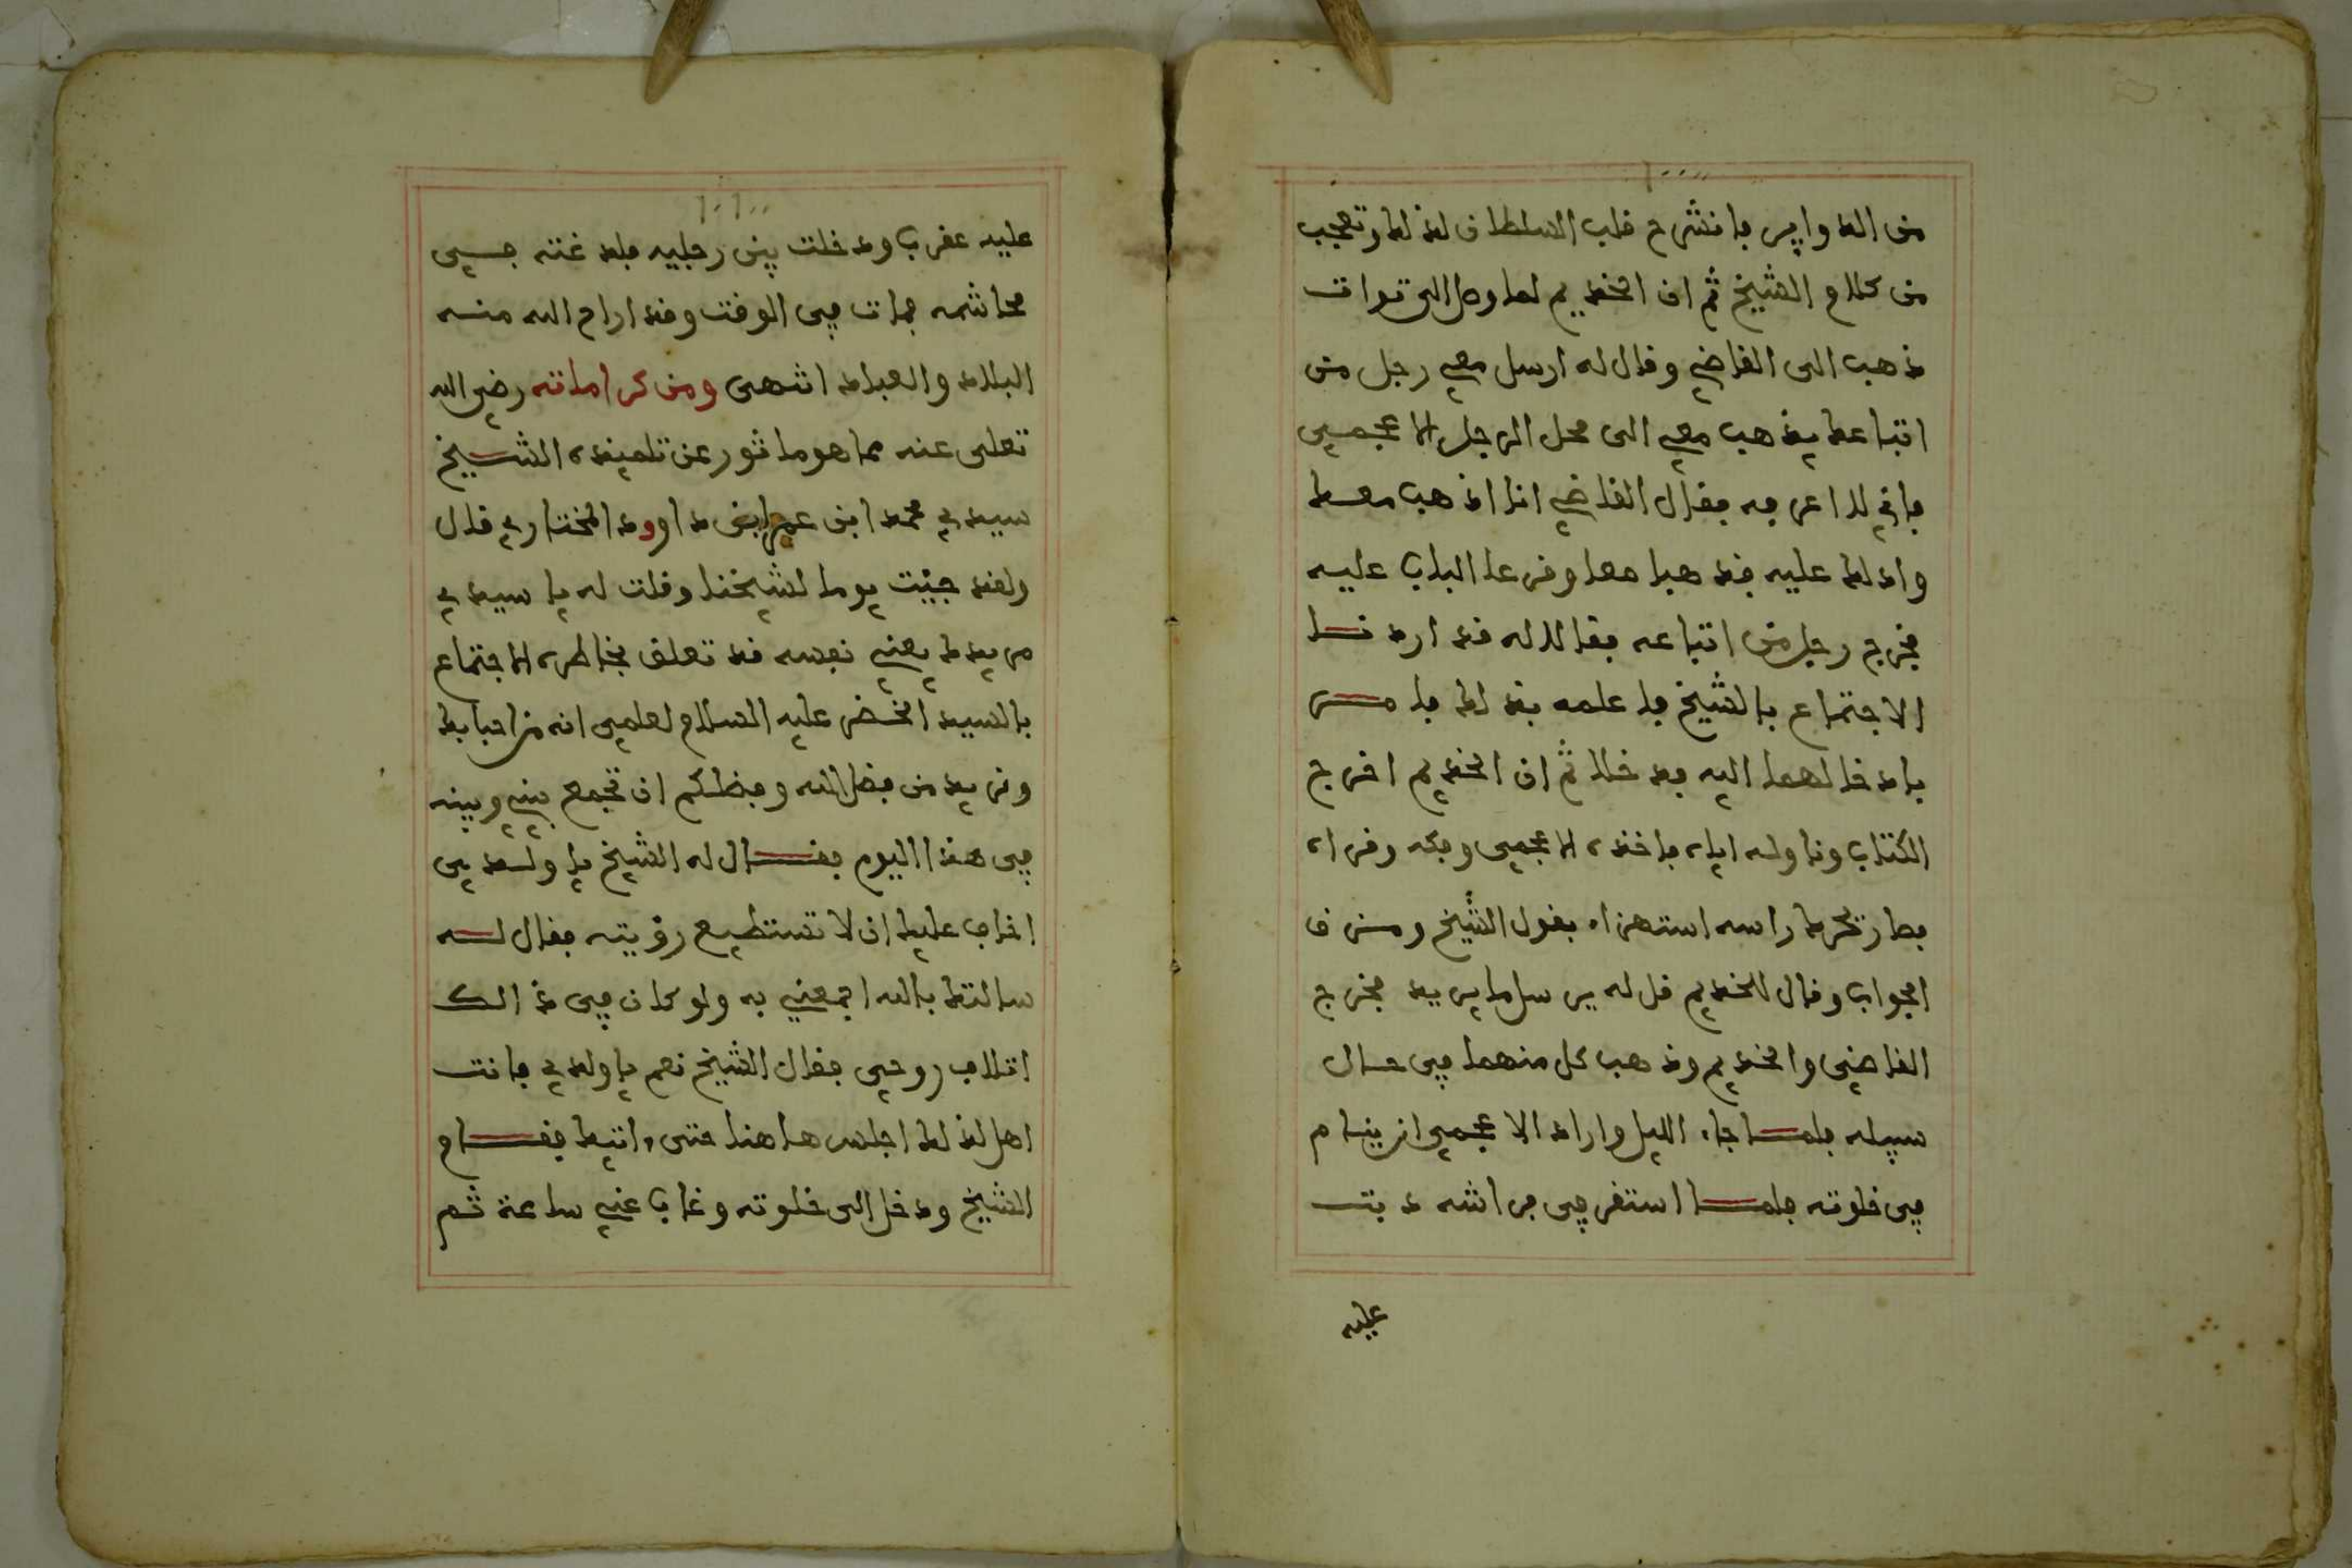 من الدواير فانشرح قلب السلطان لذلك وتعجب
من كلام الشيخ ثم ان الخديم لما وصل الى توات
ذهب الى القاضي وقال له ارسل معي رجل من
اتباعك يذهب معي الى محل الرجل الاعجمي
فاني لا اعرفه فقال القاضي انا اذهب معك
وادلك عليه فذهبا معا وقرعا الباب عليه
فخرج رجل من اتباعه فقالا له قد اردنا
الاجتماع بالشيخ فاعلمه بذلك فامر
بادخالهما اليه فدخلا ثم ان الخديم اخرج
الكتاب وناوله اياه فاخذه الاعجمي وفكه وقراه
فصار تحرك راسه استهزاء بقول الشيخ ومن ف
الجواب وقال للخديم قل له يرسل ما يريد فخرج
القاضي والخديم وذهب كل منهما في حال
سبيله فلما جاء الليل واراد الاعجمي ان ينام
في خلوته فلما استقر في فراشه دبت
عليه
عليه عقرب ودخلت بين رجليه فلدغته في
محاشمه فمات في الوقت وقد اراح الله منه
البلاد والعباد انتهى ومن كراماته رضي الله
تعلى عنه مما هو ماثور عن تلميذه الشيخ
سيدي محمد ابن عمر ابن داوود المختاري قال
ولقد جئت يوما لشيخنا وقلت له يا سيدي
مريدك يعني نفسه قد تعلق بخاطره الاجتماع
بالسيد الخضر عليه السلام لعلمي انه من احبابك
ونريد من فضل الله وفضلكم ان تجمع بيني وبينه
في هذا اليوم فقال له الشيخ يا ولدي
اخاف عليك ان لا تستطيع رؤيته فقال له
سالتك بالله اجمعني به ولو كان في ذالك
اتلاف روحي فقال الشيخ نعم يا ولدي فانت
اهل لذلك اجلس هاهنا حتى اتيك فقام
الشيخ ودخل الى خلوته وغاب عني ساعة ثم